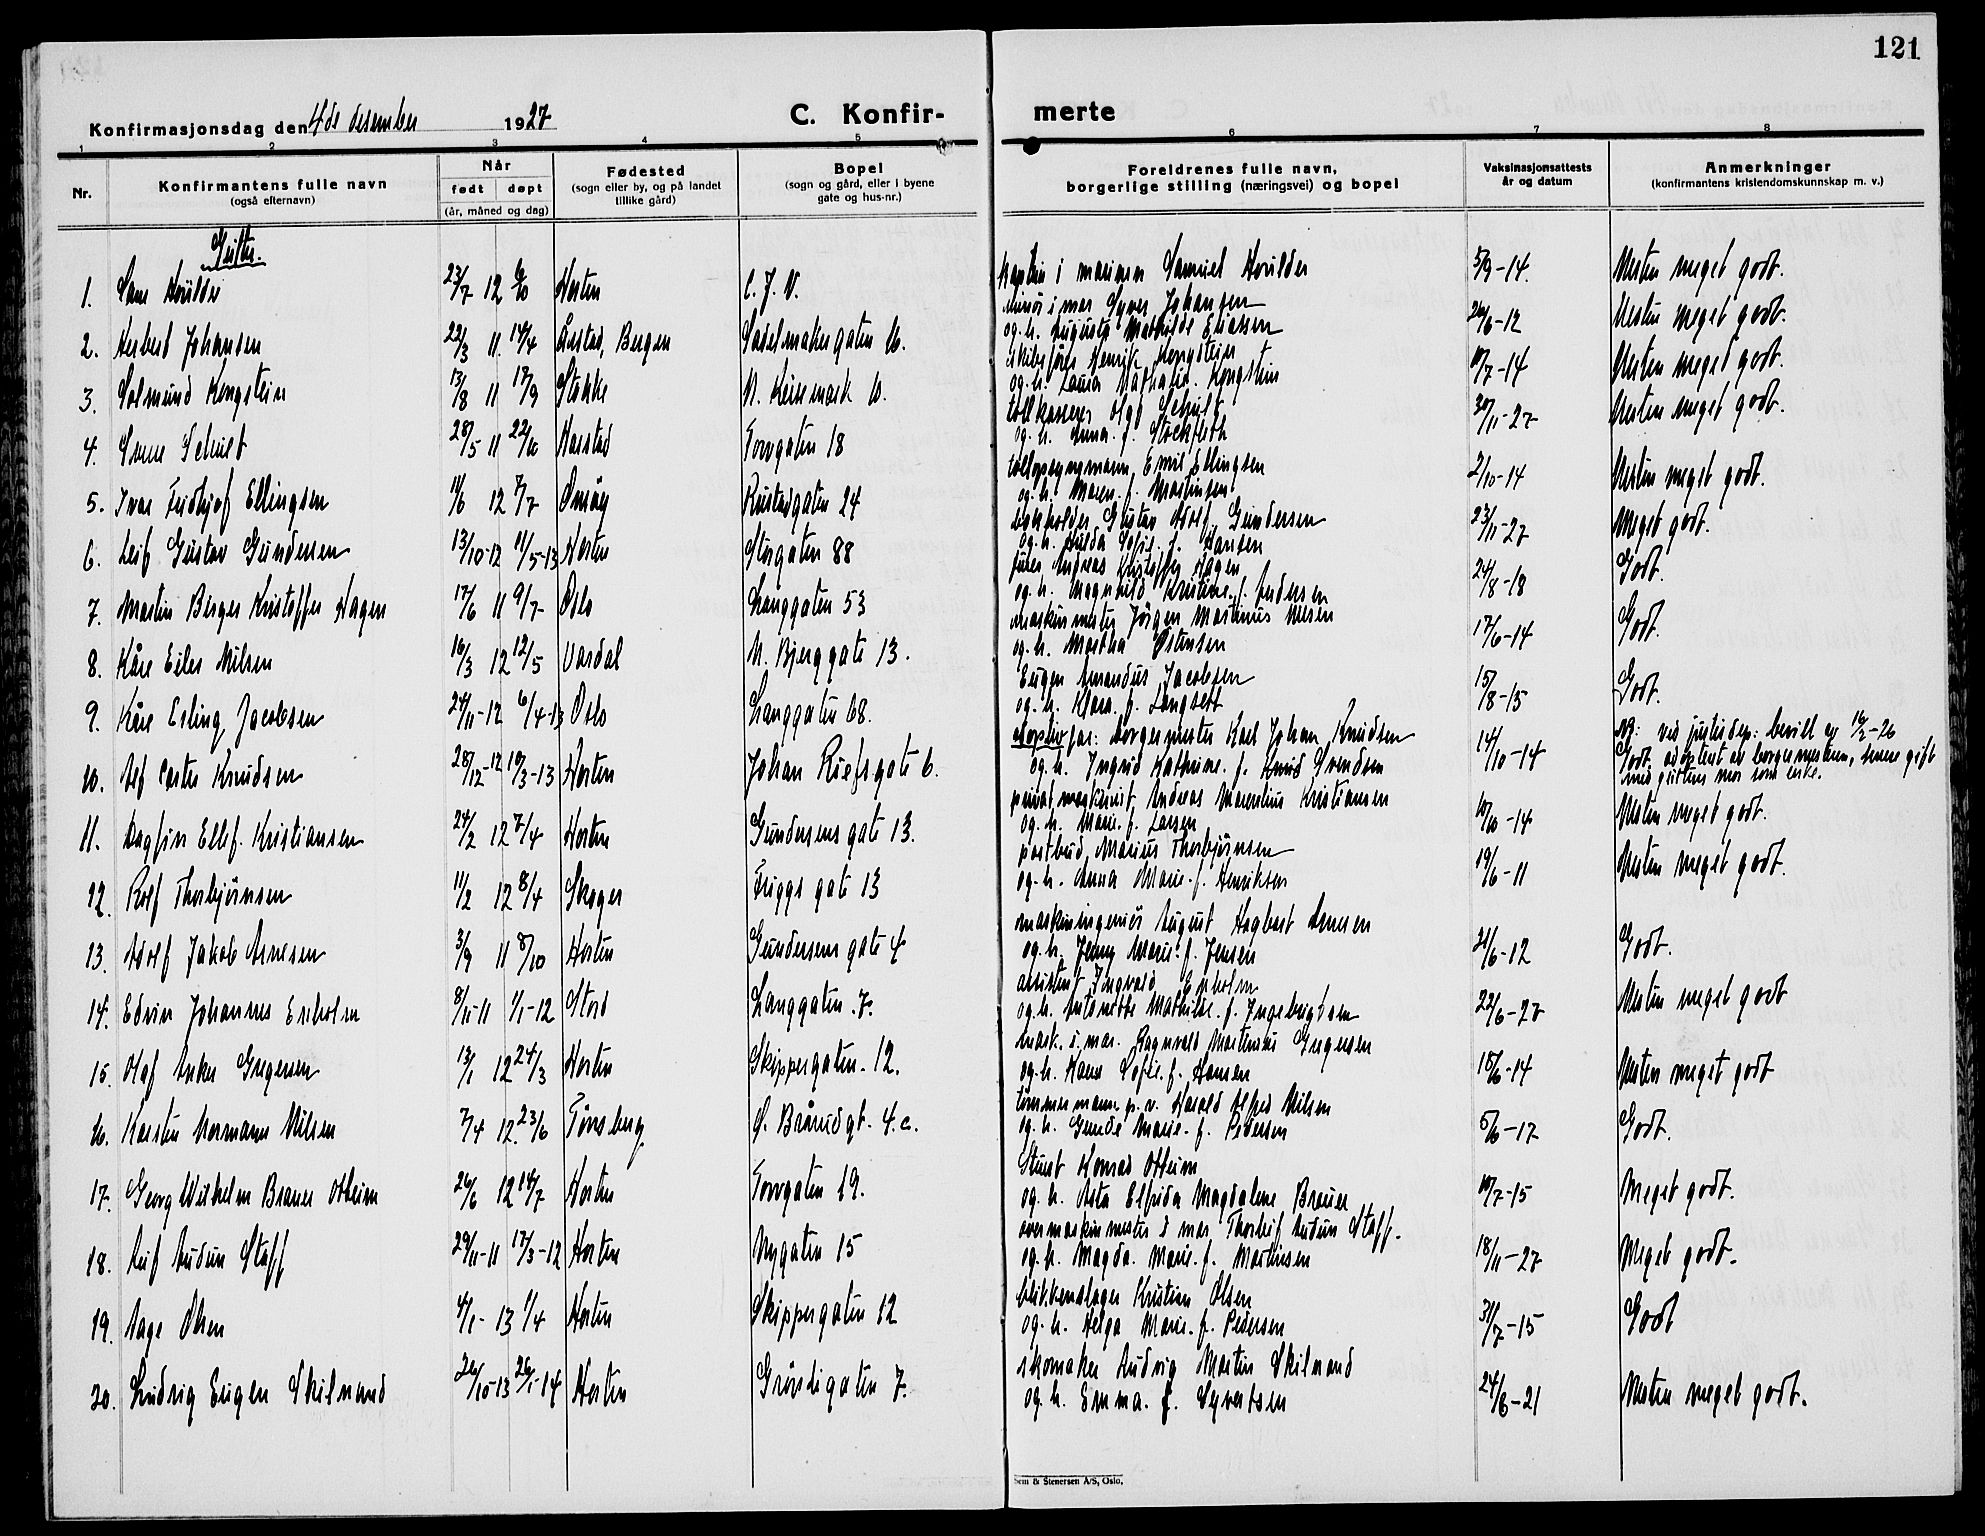 121
Konfirmasjonsdag den 4de desember 1927
C. Konfir-
merte
1 2 3 4 5 6 7 8
Nr.
Konfirmantens fulle navn
(også efternavn)
Når
født døpt
(år, måned og dag)
Fødested
(sogn eller by, og på landet
tillike gård)
Bopel
(sogn og gård, eller i byene
gate og hus-nr.)
Foreldrenes fulle navn,
borgerlige stilling (næringsvei) og bopel
Vaksinasjonsattests
år og datum
Anmerkninger
(konfirmantens kristendomskunnskap m. v.)
Gutter.
1. 23/7 12 Horten C. J. V. i marinen Samuel 5/9-14. Nesten meget godt.
2. Herbert Johansen 22/3 11. 14/4 Årstad, Bergen Sadelmakergaten 16. minör i mar Syver Johansen
og h. Augusta Mathilde Eliassen 26/6-12 Nesten meget godt.
3. Solmund Kongstein 13/8 11 17/9 Stokke N. Keisemark 10. skibsfører Henrik Kongstein
og h. Laura Nathalie Kongstein 10/7-14 Nesten meget godt.
4. Schult 28/5 11 22/10 Harstad Torvgaten 18 tollkasserer Olga Schult
og h. Anna f. Stockfleth 30/11-27 Nesten meget godt.
5. Ivar Fridtjof Ellingsen 11/6 12 7/7 Rustadgaten 24 tollopsynsmann Emil Ellingsen
og h. Maren f. Martinsen 2/10-14 Nesten meget godt.
6. Leif Gustav Gundersen 13/10-12 11/5-13 Horten Storgaten 88 Gustav Adolf Gundersen
og h. Hulda Sofie f. Hansen 23/11-27 Meget godt.
7. Martin Berger Kristoffer Hagen 17/6 11 9/7- Oslo Langgaten 53 furer Andreas Kristoffer Hagen
og h. Magnhild Kristine f. Andersen 24/8-18 Godt.
8. Kåre Eiler Nilsen 16/3 12 12/5 Vardal N. Bjerggate 13. maskinmester Jörgen Martinius Nilsen
og h. Martha Østensen 17/6-14 Godt.
9. Kåre Erling Jacobsen 24/11-12 6/4-13 Oslo Langgaten 68. Eugen Amandus Jacobsen
og h. Klara f. Langseth 15/8-15 Godt.
10. Alf Carter Knudsen 28/12-12 10/3-13 Horten Johan Riefsgate 6. adoptivfar: borgermester Karl Johan Knudsen
og h. Ingrid Kathrine f. Svendsen 14/10-14 ved justisdep. bevill av 16/2-26
Godt. adoptert av borgermesteren, senere gift
med guttens mor som enke.
11. Dagfin Ellef Kristiansen 24/2 12 7/4 Horten Gundersens gate 13. privat maskinist Andreas Marentius Kristiansen
og h. Marie f. Larsen 10/10-14 Nesten meget godt.
12. Rolf Thorbjörnsen 11/2 12 8/4 Skoger Friggs gate 13 postbud Marius Thorbjörnsen
og h. Anna Marie f. Henriksen 19/6-11 Nesten meget godt.
13. Adolf Jakob Arnesen 3/9 11 8/10 Horten Gundersens gate 4 maskiningeniör August Hagbart Arnesen
og h. Jenny Marie f. Jensen 21/6-12 Godt.
14. Edvin Johannes Enholm 8/11-11 1/1-12 Stord Langgaten 7. assistent Ingvald Enholm
og h. Antonette Mathilde f. Ingebrigtsen 22/6-27 Nesten meget godt
15. Olaf Anker Gregersen 13/1 12 24/3 Horten Skippergaten 12. mask. i mar. Ragnvald Martinius Gregersen
og h. Kaia Sofie f. Hansen 18/6-14 Nesten meget godt
16. Karsten Normann Nilsen 7/4 12. 23/6 Tønsberg Ø. Bråradgt. 4.c. tömmermann p. v. Harald Alfred Nilsen
og h. Gunda Marie f. Pedersen 5/6-17 Godt.
17. Georg Wilhelm Brauer Ottheim 26/6 12 14/7 Horten Torvgaten 19. Stuert Konrad Ottheim
og h. Asta Elfrida Magdalene Brauer 10/7-15 Meget godt.
18. Leif Audun Staff 29/11-11 17/3-12 Horten Nygaten 15 overmaskinmester i mar Thorleif Audun Staff.
og h. Magda Marie f. Martinsen 18/11-27 Meget godt.
19. Aage Olsen 4/1- 13 1/4 Horten Skippergaten 12 blikkenslager Kristian Olsen
og h. Helga Marie f. Pedersen 31/7-15 Godt
20. Ludvig Eugen Skilnand 26/10-13 26/1-14 Horten Grønligaten 7. skomaker Ludvig Martin Skilnand
og h. Emma f. Syvertsen 24/6-21 Nesten meget godt.
Sem & Stenersen A/S, Oslo.